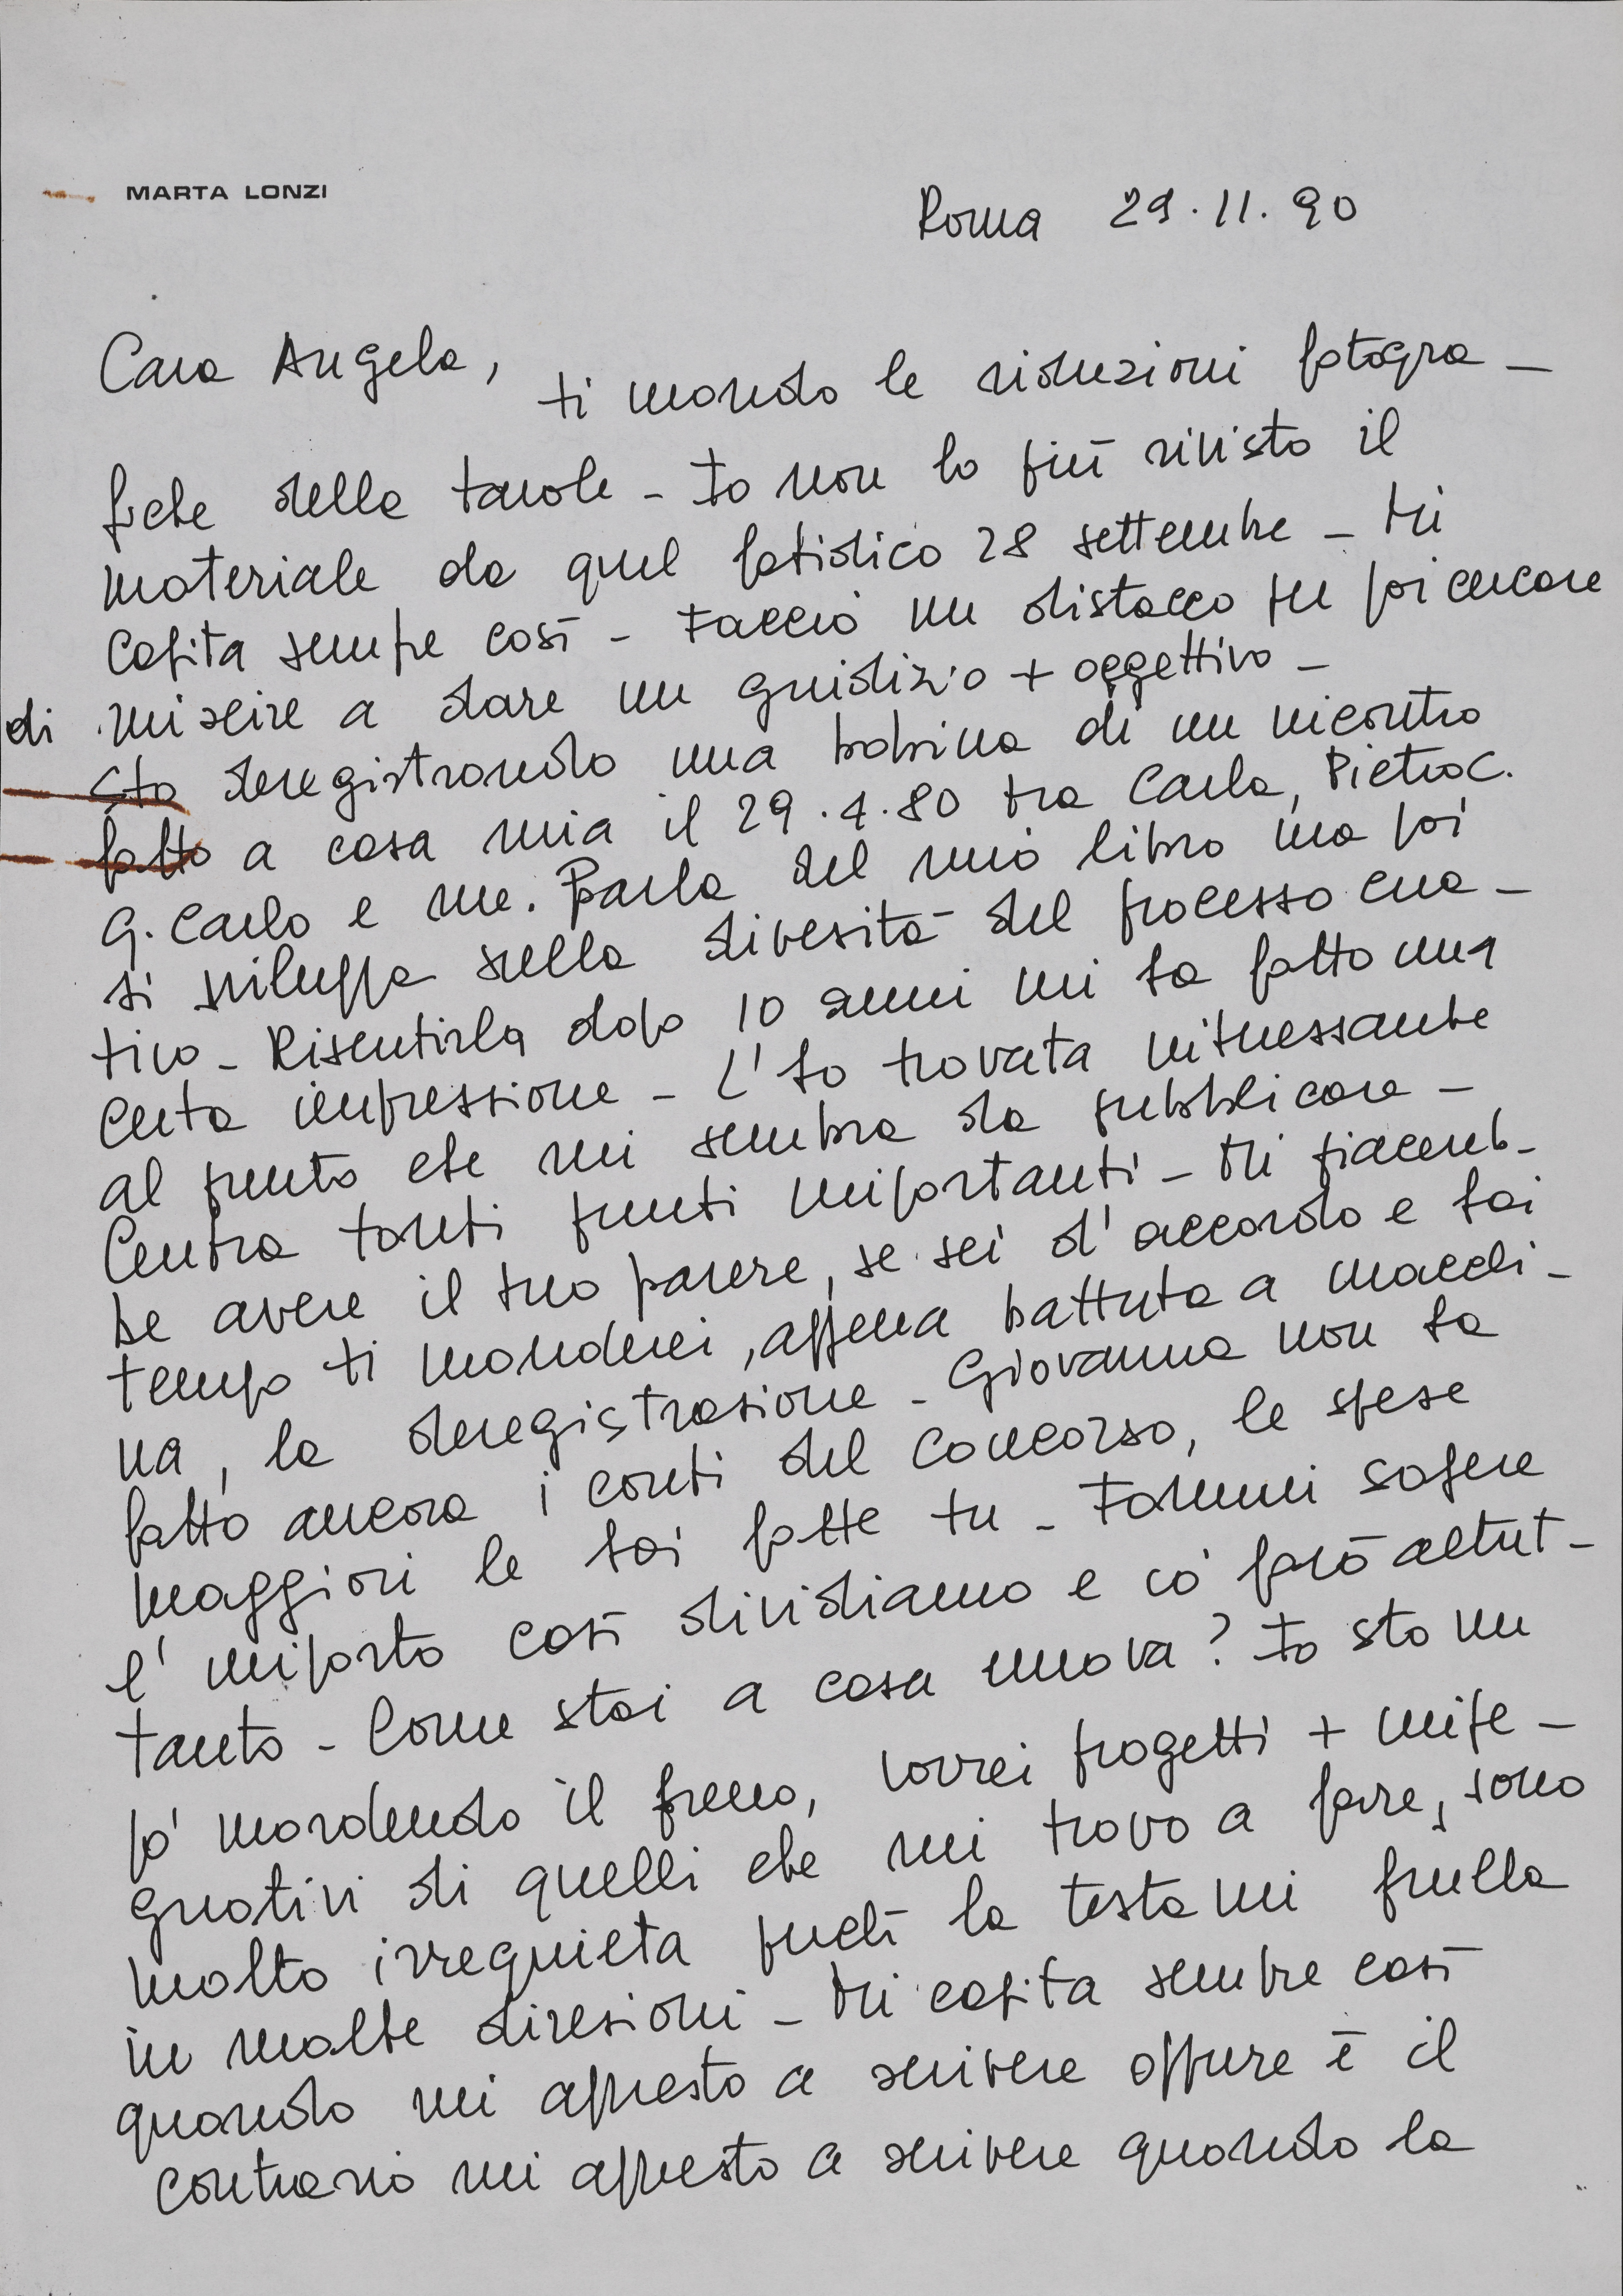 MARTA LONZI
Roma 29.11.90
Cara Angela,
ti mando le riduzioni fotogra-
fiche delle tavole - Io non ho più rivisto il
materiale da quel fatidico 28 settembre - Mi
capita sempre così - Faccio un distacco per poi cercare
di riuscire a dare un giudizio + oggettivo -
Sto deregistrando una bobina di un incontro
fatto a casa mia il 29.4.80 tra Carla, Pietro C.
G. Carlo e me. Parla del mio libro ma poi
si sviluppa sulla diversità del processo crea-
tivo - Risentirla dopo 10 anni mi ha fatto una
certa impressione - L'ho trovata interessante
al punto che mi sembra da pubblicare -
Centra tanti punti importanti - Mi piacereb-
be avere il tuo parere, se sei d'accordo e hai
tempo ti manderei, appena battuta a macchi-
na, la deregistrazione - Giovanna non ha
fatto ancora i conti del Concorso, le spese
maggiori le hai fatte tu - Fammi sapere
l'importo così dividiamo e io farò altret-
tanto - Come stai a casa nuova? Io sto un
po' mordendo il freno, vorrei progetti + impe-
gnativi di quelli che mi trovo a fare, sono
molto irrequieta perché la testa mi frulla
in molte direzioni - Mi capita sempre così
quando mi appresto a scrivere oppure è il
contrario mi appresto a scrivere quando la